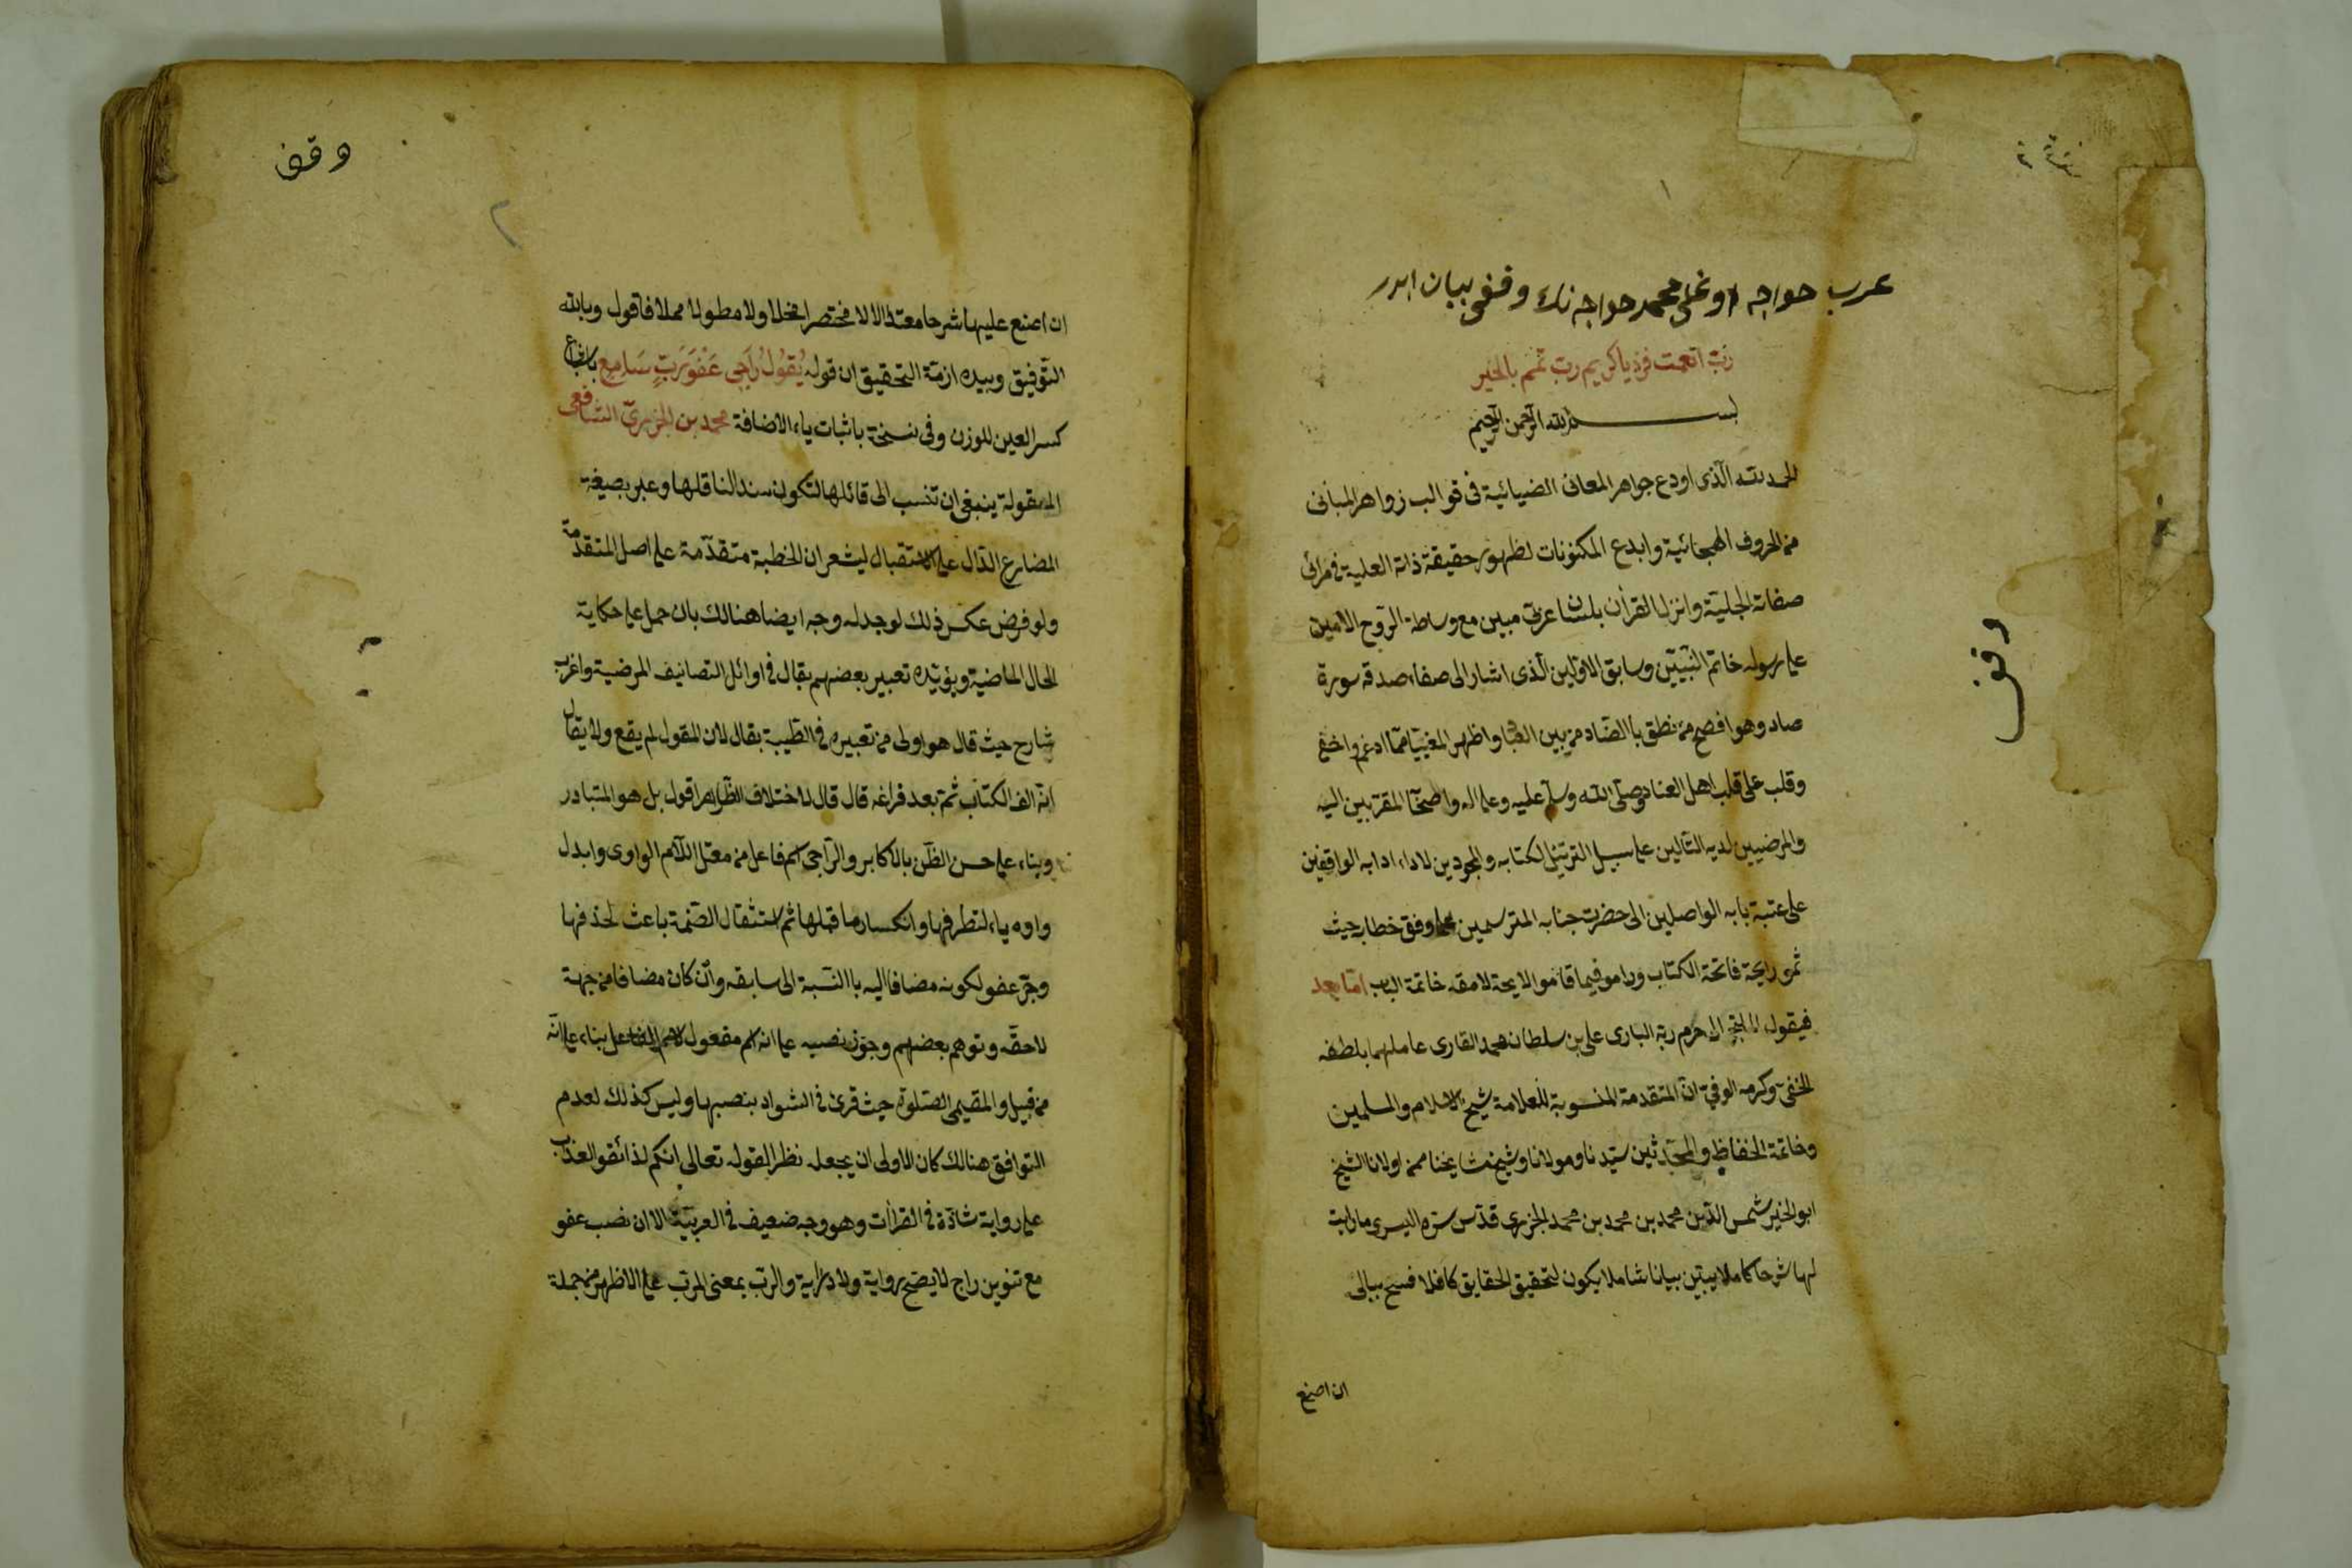 ١
عرب حواجه اوغلى محمد حواجه نك وقفى بيان ايدر
رب انعمت فزد يا كريم رب تمم بالخير
بسم الله الرحمن الرحيم
الحمد لله الذى اودع جواهر المعانى الضيائية فى قوالب زواهر المبانى
من الحروف الهجائية وابدع المكنونات لظهور حقيقة ذاته العلية فى مرائى
صفاته الجلية وانزل القرأن بلسان عربى مبين مع وساطة الروح الامين
على رسوله خاتم النبيين وسابق الاولين الذى اشار الى صفاء صدقه سورة
صاد وهو افصح من نطق با الضاد من بين العباد واظهر المغيبا مما ادغم واخفى
وقلب على قلب اهل العناد وصلى الله وسلم عليه وعلى اله واصحا المقربين اليه
والمرضيين لديه التالين على سبيل الترتيل لكتابه والمجودين لاداء ادابه الواقفين
على عتبة بابه الواصلين الى حضرت جنابه المترسمين على وفق خطابه حيث
ثمو رايحة فاتحة الكتاب وداموا فيما قاموا لايحة لامقه خاتمة الباب اما بعد
فيقول الملتجى الى حرم ربه البارى على بن سلطان محمد القارى عاملهما بلطفه
الخفى وكرمه الوفى ان المتقدمة المنسوبة للعلامة شيخ الاسلام والمسلمين
وخاتمة الحفاظ والمحدثين سيدنا ومولانا وشيخ مشايخنا ممن اولانا الشيخ
ابو الخير شمس الدين محمد بن محمد بن محمد الجزرى قدس سره السرى ما رايت
لها شرحا كاملا يبين بيانا شاملا يكون لتحقيق الحقايق كافلا فسح ببالى
ان اصنع
وقف
وقف
٢
ان اصنع عليها شرحا معتدلا لا مختصرا مخلا ولا مطولا مملا فاقول وبالله
التوفيق وبيده ازمة التحقيق ان قوله يقول راجى عفو رب سامع باشباع
كسر العين للوزن وفى نسخة باثبات ياء الاضافة محمد بن الجزرى الشافعى
المقولة ينبغى ان تنسب الى قائلها لتكون سندا لناقلها وعبر بصيغة
المضارع الدال على الاستقبال ليشعر ان الخطبة متقدمة على اصل المتقدمة
ولو فرض عكس ذلك لوجد له وجه ايضا هنالك بان حمل على حكاية
الحال الماضية ويؤيده تعبير بعضهم بقال فى اوائل التصانيف المرضية واغرب
شارح حيث قال هو اولى من تعبيره فى الطيبة بقال لان المقول لم يقع ولا يقال
انه الف الكتاب ثم بعد فراغه قال قال لاختلاف الظاهر اقول بل هو المتبادر
وبناء على حسن الظن بالاكابر والراجى اسم فاعل من معتل اللام الواوى وابدل
واوه ياء لتطرفها وانكسار ما قبلها ثم استثقال الضمة باعث لحذفها
وجر عفو لكونه مضافا اليه با النسبة الى سابقه وان كان مضافا من جهة
لاحقه وتوهم بعضهم وجوز نصبه على انه اسم مفعول لاسم الفاعل بناء على انه
من قبيل والمقيمى الصلوة حيث قرئ فى الشواد بنصبها وليس كذلك لعدم
التوافق هنالك كان الاولى ان يجعله نظرا لقوله تعالى انكم لذائقوا العذاب
على رواية شاذة فى القراأت وهو وجه ضعيف فى العربية الا ان نصب عفو
مع تنوين راج لا يصح رواية ولا دراية والرب بمعنى المرب على الاظهر من جملة